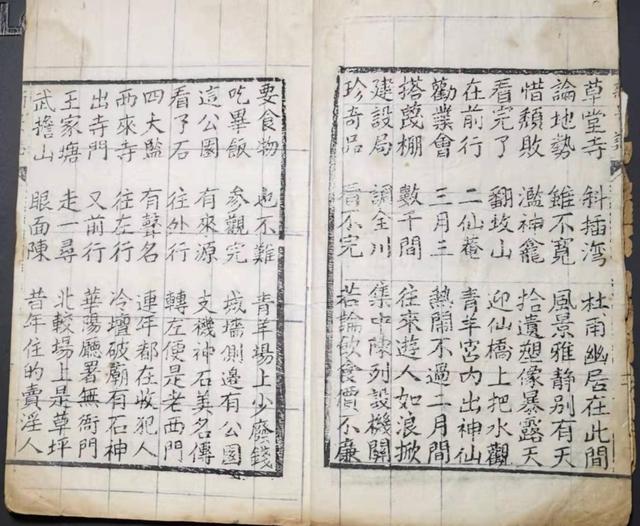 草堂寺 斜插湾 杜甫幽居在此間
論地勢 雖不寬 風景雅静別有天
惜頹敗 濫神龕 拾遺塑像暴露天
看完了 翻坟山 迎仙橋上把水觀
在前行 二仙菴 青羊宮内出神仙
勸業會 三月三 熱鬧不過二月間
搭蔑棚 數千間 往來遊人如浪掀
建設局 調全川 集中陳列設機關
珍奇品 看不完 若論飲食價不亷
要食物 也不難 青羊場上少廢錢
吃畢飯 參觀完 城墻側邊有公園
這公園 有來源 支機神石美名傳
看了石 往外行 轉左便是老西門
四大監 有聲名 連年都在收犯人
西來寺 往左行 冷壇破廟有石神
出寺門 又前行 華陽廳署無衙門
王家塘 走一尋 北較場上是草坪
武擔山 眼面陳 昔年住的賣淫人